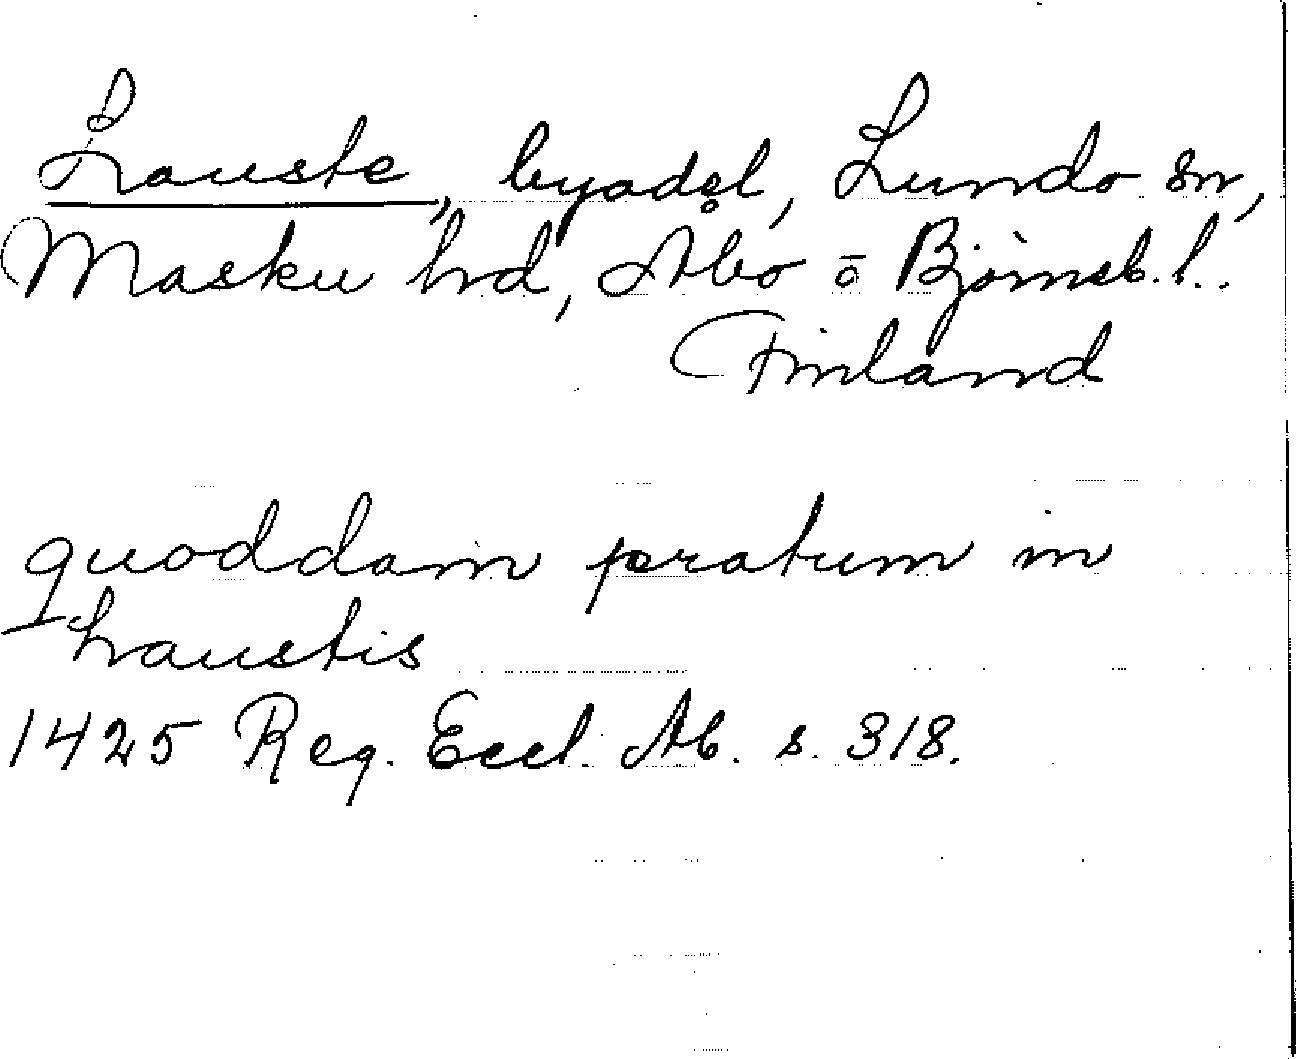 Lauste, byadel, Lundo sn,
Masku hd, Åbo o Björneb. l.
Finland
quoddam pratum in
Laustis
1425 Reg. Eccl. Ab. s. 318.